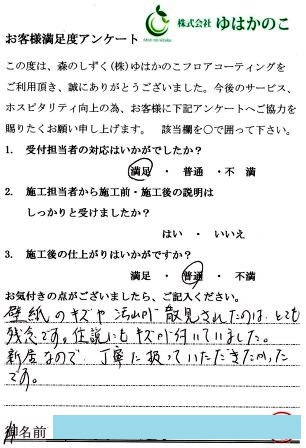 株式会社 ゆはかのこ
お客様満足度アンケート
この度は、森のしずく(株)ゆはかのこフロアコーティングを
ご利用頂き、誠にありがとうございました。今後のサービス、
ホスピタリティ向上の為、お客様に下記アンケートへご協力を
賜りたくお願い申し上げます。 該当欄を○で囲って下さい。
1. 受付担当者の対応はいかがでしたか?
満足 ・ 普通 ・不 満
2. 施工担当者から施工前・施工後の説明は
しっかりと受けましたか?
はい ・ いいえ
3. 施工後の仕上がりはいかがですか?
満足 ・ 普通 ・ 不満
お気付きの点がございましたら、ご記入ください。
壁紙のキズや汚れが散見されたのは、とても
残念です。仕設にもキズが付いていました。
新居なので、丁寧に扱っていただきたかった
です。
御名前